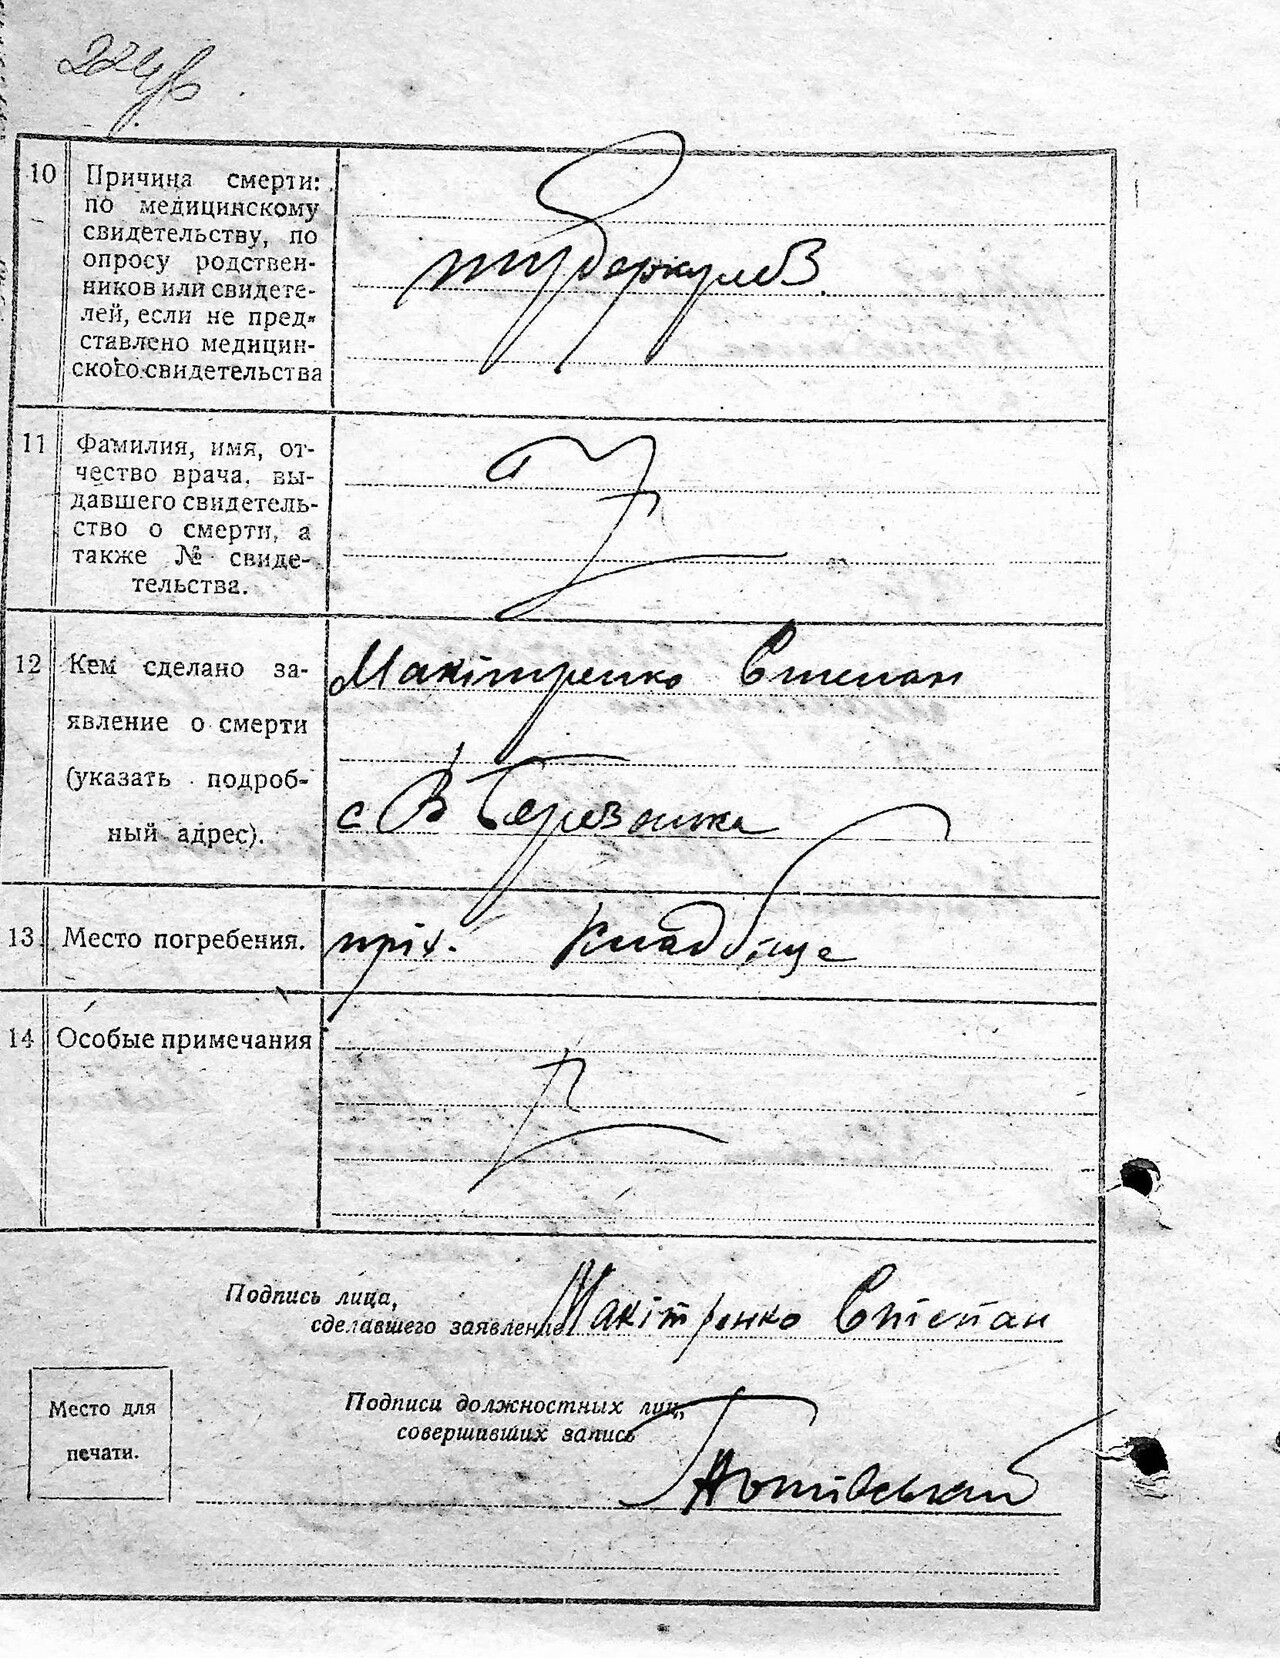 10 Причина смерти:
по медицинскому
свидетельству, по
опросу родствен-
ников или свидете-
лей, если не пред-
ставлено медицин-
ского свидетельства
туберкулез
11 Фамилия, имя, от-
чество врача, вы-
давшего свидетель-
ство о смерти, а
также № свиде-
тельства.
12 Кем сделано за-
явление о смерти
(указать подроб-
ный адрес).
Макітренко Степан
с В Березанка
13 Место погребения.
пріх. кладбіще
14 Особые примечания
Подпись лица,
сделавшего заявление Макітренко Степан
Место для
печати.
Подписи должностных лиц,
совершивших запись